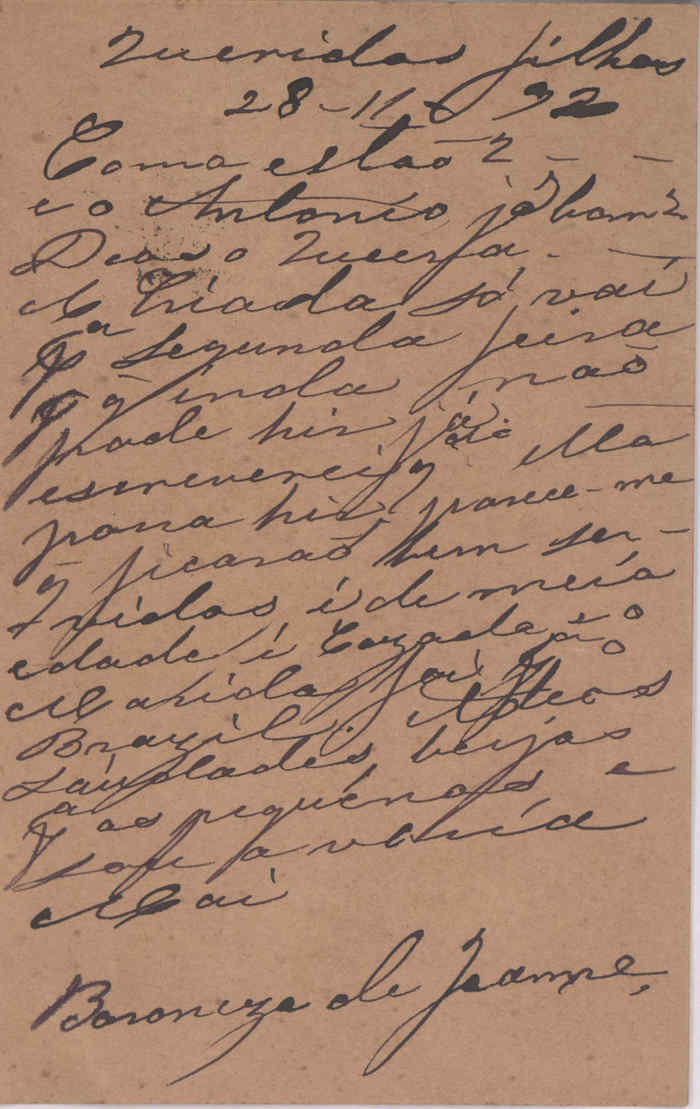 Queridos filhos
28-11-92
Como estão?
e o Antonio já bom?
Deus o queira.
A Criada só vai
pª segunda feira
q̃ inda não
pode hir já.
escreverei Ella
para hir, parece-me
q̃ ficarão bem ser-
vidos é de meia
edade é Cazada o
Marido foi pª o
Brazil.
saudades, beijos
aos pequenos e
sou a vossa
Mai
Baroneza de Joanne,